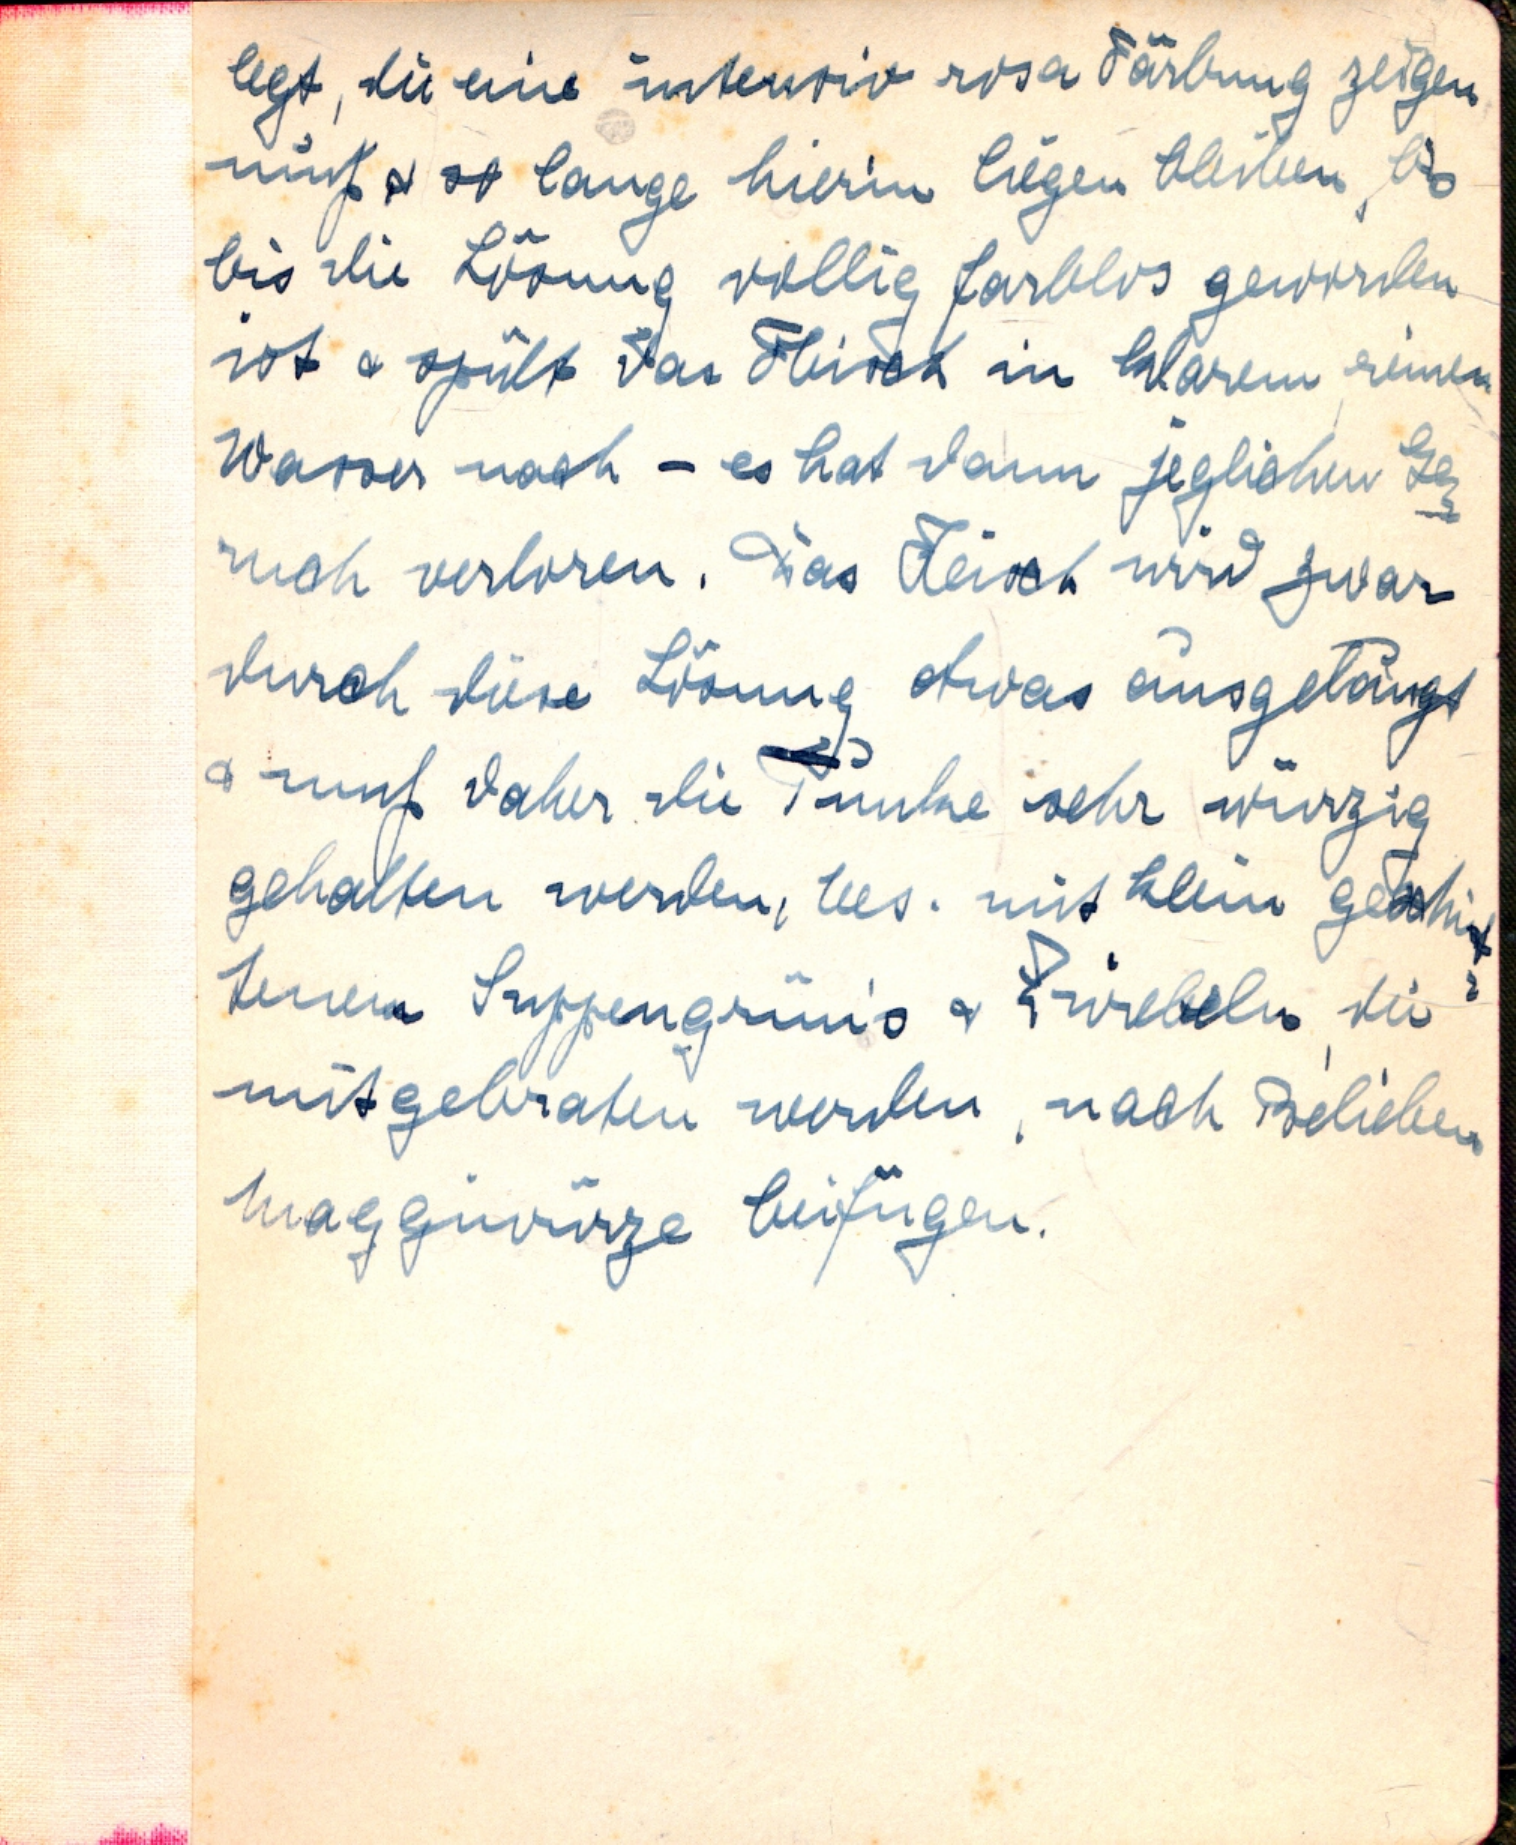 legt, die eine intensiv rosa Färbung zeigen
muß & so lange hierin liegen bleiben, bis
bis die Lösung völlig farblos geworden
ist & spült das Fleisch in klarem reinen
Wasser nach – es hat dann jeglichen Ge-
ruch verloren. Das Fleisch wird zwar
durch diese Lösung etwas ausgelaugt
& muß daher die Tunke sehr würzig
gehalten werden, bes. mit klein geschnit-
tenem Suppengrünis & Zwiebeln, die
mitgebraten werden, nach Belieben
Maggiwürze beifügen.